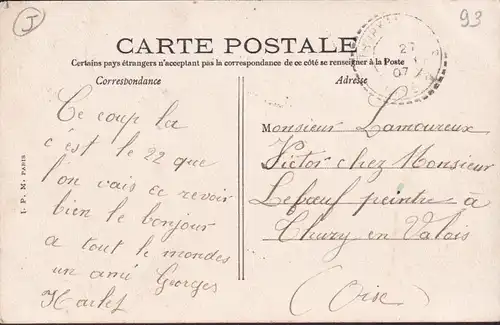 J
93
CARTE POSTALE
Certains pays étrangers n'acceptant pas la correspondance de ce côté se renseigner à la Poste
Correspondance
Adresse
27
07
Ce coup la
c'est le 22 que
l'on vais ce revoir
bien le bonjour
a tout le mondes
un ami Georges
Monsieur Lamoureux
Victor chez Monsieur
Lebœuf peintre à
Thury en Valois
(Oise)
I. P. M. PARIS